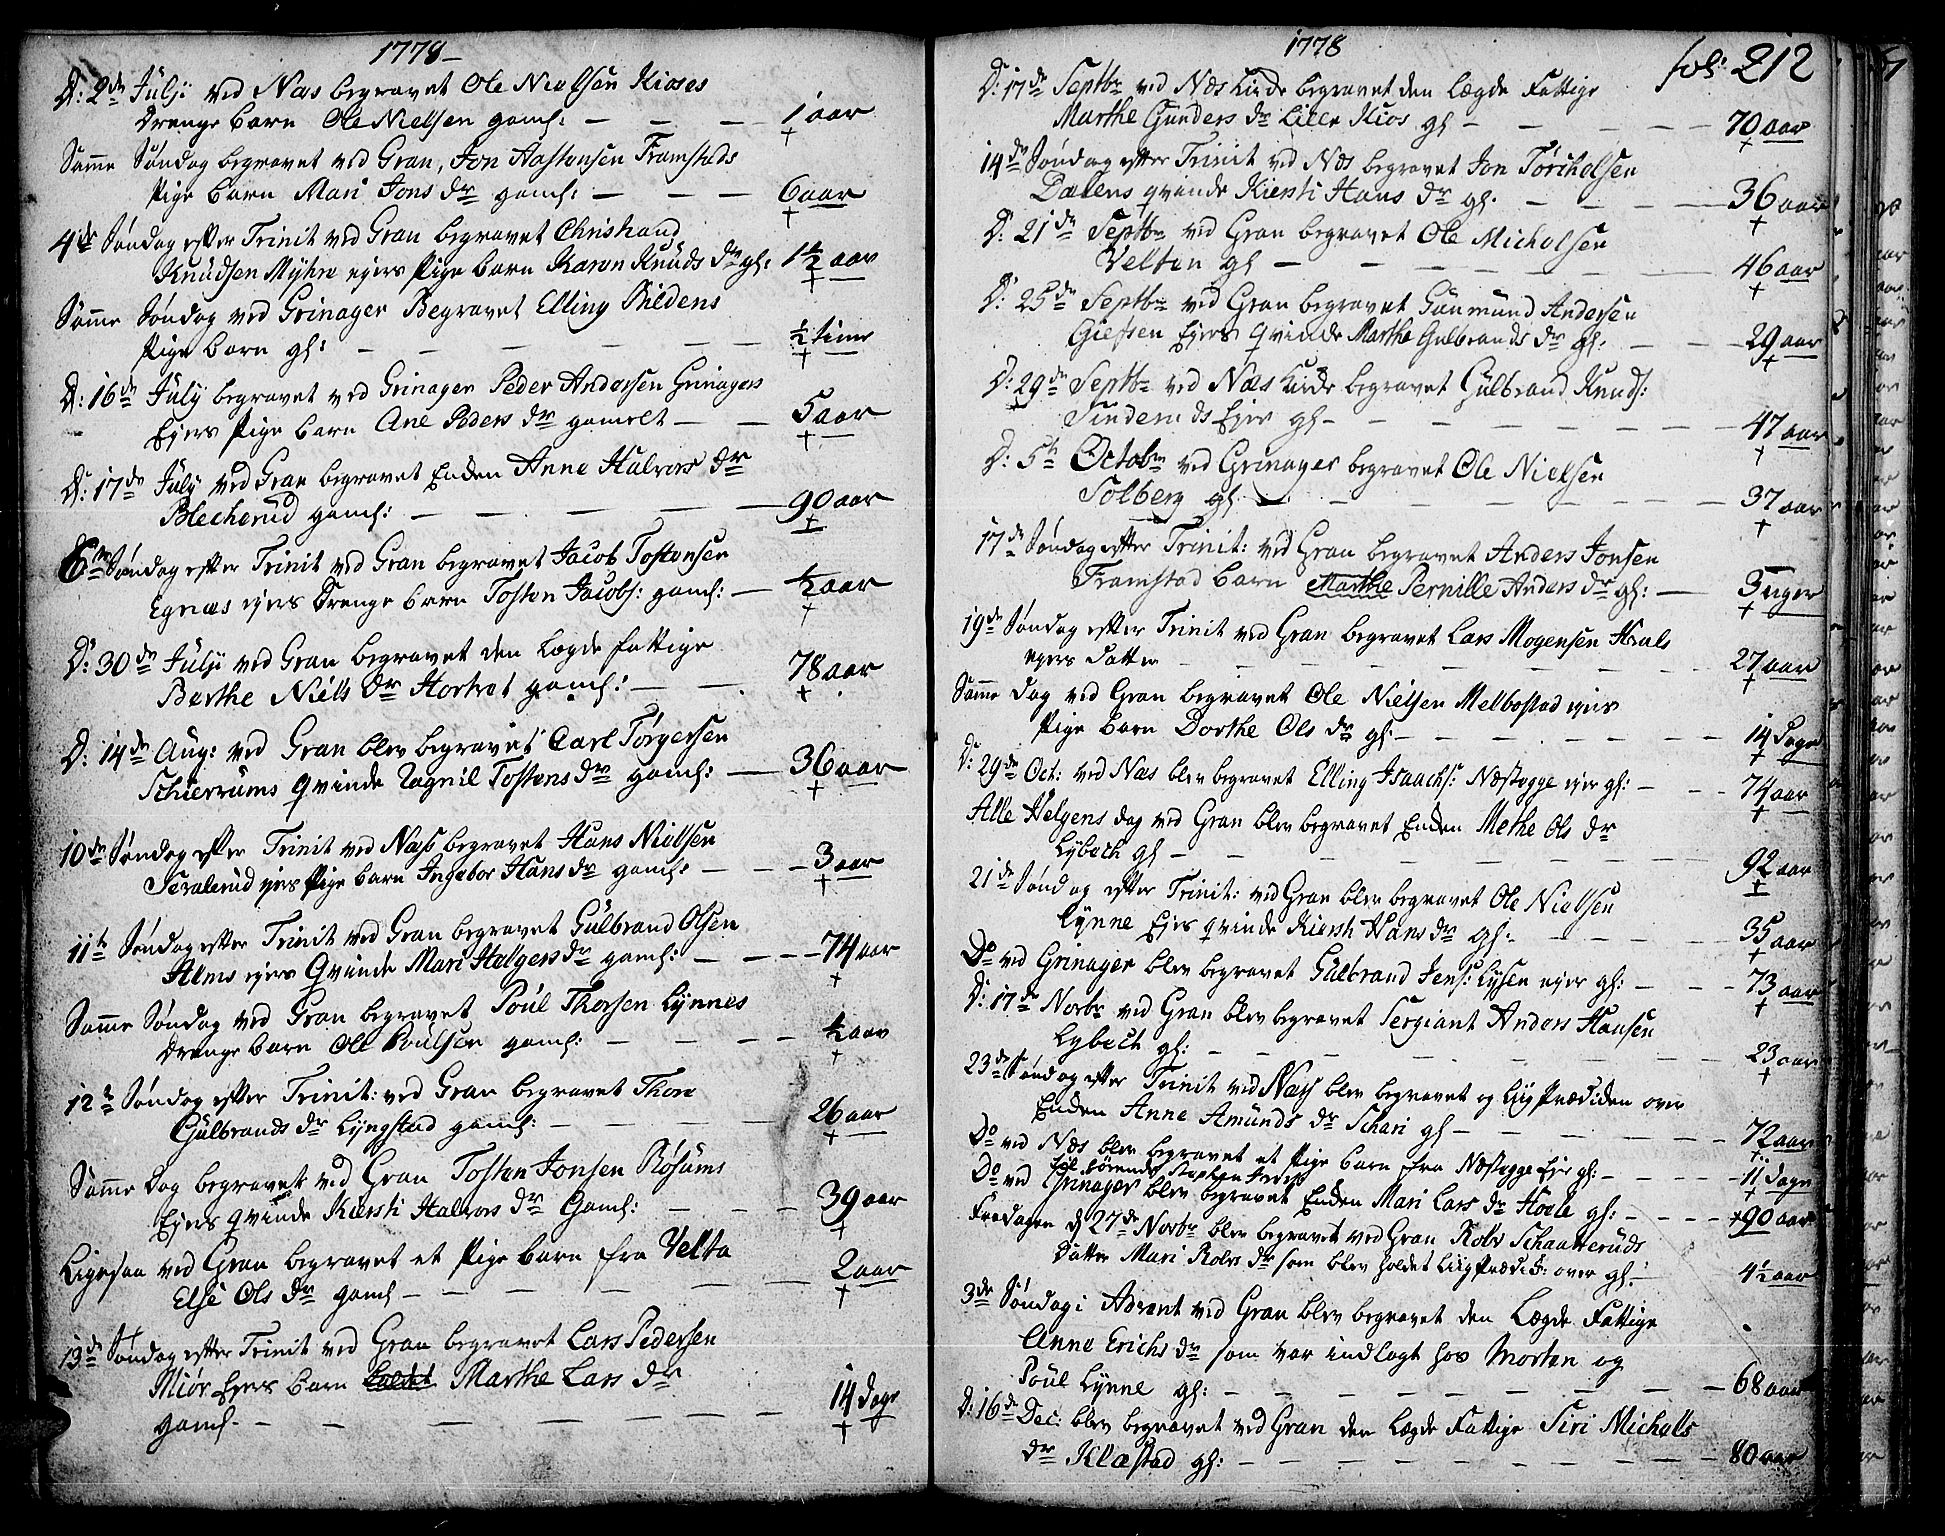 1778
D: 2de Julji ved Næs begravet Ole Nielsen Kioses
Drenge barn Ole Nielsen gaml: 1 aar
Samme Søndag begravet ved Gran, Jon Aastensen Framstads
Pige barn Mari Jons dr gaml: 6 aar
4de Søndag efter Trinit ved Gran begravet Christian
Knudsen Myhre ejers Pige barn Karen Knuds dr gl: 1½ aar
Samme Søndag ved Grinager Begravet Elling Bildens
Pige barn gl: ½ time
D: 16de July begravet ved Grinager Peder Andersen Grinagers
Ejers Pige barn Ane Peders dr gamelt 5 aar
D: 17de July ved Gran begravet Enken Anne Halvors dr
Blecherud gaml: 90 aar
6te Søndag efter Trinit ved Gran begravet Jacob Tostensen
Egnæs ejers Drenge barn Tosten Jacobs: gaml: ½ aar
D: 30de Julji ved Gran begravet den Lægde fattige
Berthe Niels Dr Hortvet gaml: 78 aar
D: 14de Aug: ved Gran blev begravet Carl Torgersen
Schierrums Qvinde Ragnil Tostens dr gaml: 36 aar
10de Søndag efter Trinit ved Næss begravet Hans Nielsen
ejers Pige barn Ingebor Hans dr gaml: 3 aar
11te Søndag efter Trinit ved Gran begravet Gulbrand Olsen
Alms ejers Qvinde Mari Helgers dr gaml: 74 aar
Samme Søndag ved Gran begravet Poul Thorsen Lynnes
Drenge barn Ole Poulsen gaml: ½ aar
12te Søndag efter Trinit: ved Gran begravet Thore
Gulbrands dr Lyngstad gaml: 26 aar
Samme Dag begravet ved Gran Tosten Jonsen Rosums
Ejers qvinde Kiersti Halvors dr Gaml: 39 aar
Ligesaa ved Gran begravet et Pige barn fra Velta
Else Ols dr gaml 2 aar
13de Søndag efter Trinit ved Gran begravet Lars Pedersen
Miør Ejers barn Marthe Lars dr
gaml. 14 Dage
1778 fol: 212
D: 17de Septbr ved Næs Kirke begravet den Lægde Fattige
Marthe Gunders dr Lille Kios gl 70 aar
14de Søndag efter Trinit ved Næs begravet Jon Torchelsen
Dælens qvinde Kiersti Hans dr gl. 36 aar
D: 21de Septbr ved Gran begravet Ole Michelsen
Velten gl 46 aar
D: 25de Septbr ved Gran begravet Gunmund Andersen
Giefsen Ejers qvinde Marthe Gulbrands dr gl: 29 aar
D: 29de Septbr ved Næs Kirke begravet Gulbrand Knuds:
Ejer gl 47 aar
D: 5te Octobr ved Grinager begravet Ole Nielsen
Solberg gl. 37 aar
17de Søndag efter Trinit: ved Gran begravet Anders Jonsen
Framstad barn Marthe Pernille Anders dr gl: 3 uger
19de Søndag efter Trinit ved Gran begravet Lars Mogensen Hvals
ejers Datter 27 aar
Samme Dag ved Gran begravet Ole Nielsen Melbostad ejers
Pige barn Dorthe Ols dr gl. 14 Dage
D: 29de Oct: ved Næs blev begravet Elling Isaachs: Næstegge ejer gl: 74 aar
Alle Helgens dag ved Gran blev begravet Enken Methe Ols dr
Lybech gl 92 aar
21de Søndag efter Trinit: ved Gran blev begravet Ole Nielsen
Lynne Ejers qvinde Kiersti Hans dr gl. 35 aar
Do ved Grinager blev begravet Gulbrand Jens: Lysen ejer gl: 73 aar
D: 17de Novbr ved Gran blev begravet Sergiant Anders Hansen
Lybech gl: 23 aar
23de Søndag efter Trinit ved Næss blev begravet og Liig Prædiken over
Enken Anne Amunds dr Schari gl 72 aar
Do ved Næs blev begravet et Pige barn fra Næstegge Ejer gl: 11 dage
Do ved Grinager blev begravet Enken Mari Lars dr Hoele gl: 90 aar
Fredagen d 27de Novbr blev begravet ved Gran Rolv Schaaveruds
Datter Mari Rolvs dr som blev holdet Liig Prædik: over gl: 4½ aar
3de Søndag i Advent ved Gran blev begravet den Lægde Fattige
Anne Erichs dr som var indlagt hos Morten og
Poul Lynne gl: 68 aar
D: 16de Dec: blev begravet ved Gran den Lægde Fattige Siri Michels
dr Klæstad gl: 80 aar